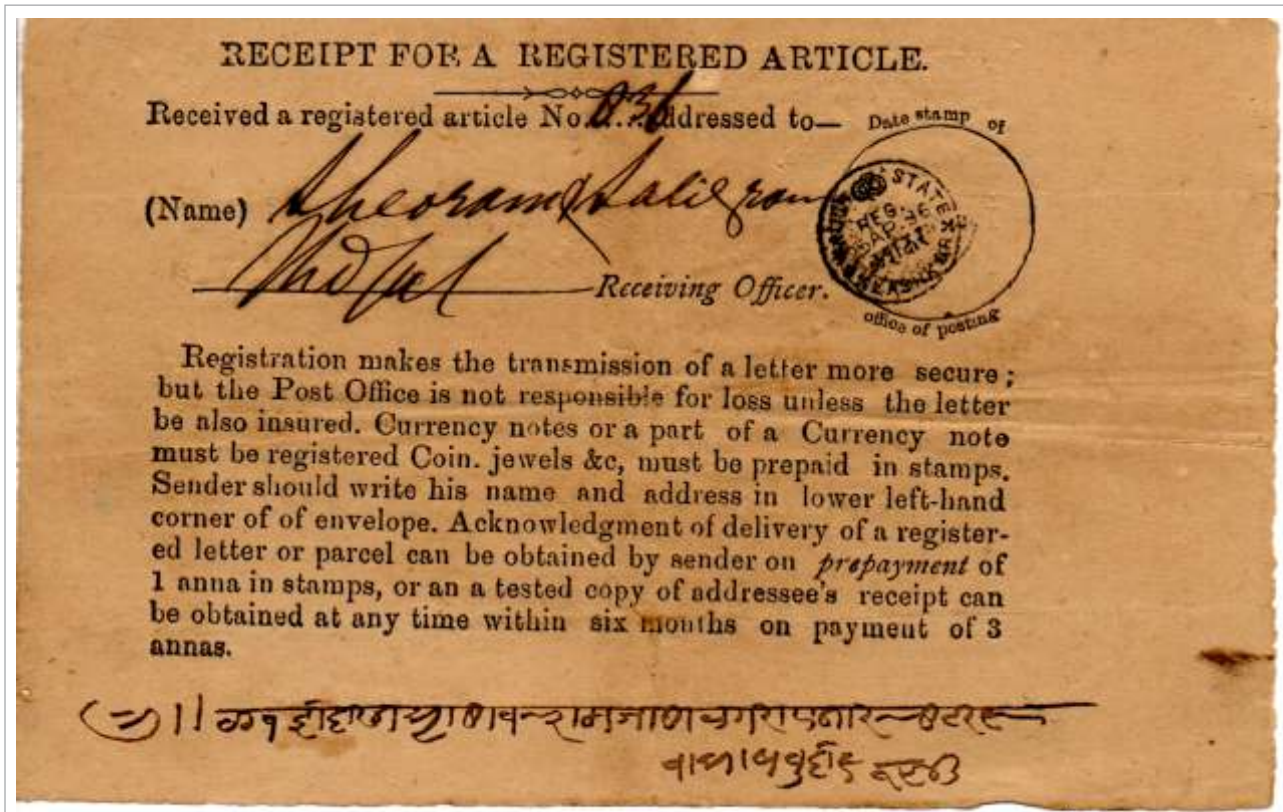 RECEIPT FOR A REGISTERED ARTICLE.
Received a registered article No. 036 addressed to—
Date stamp of
(Name) Sheoram Salig ram
Receiving Officer.
STATE
REG.
office of posting
Registration makes the transmission of a letter more secure;
but the Post Office is not responsible for loss unless the letter
be also insured. Currency notes or a part of a Currency note
must be registered Coin. jewels &c, must be prepaid in stamps.
Sender should write his name and address in lower left-hand
corner of of envelope. Acknowledgment of delivery of a register-
ed letter or parcel can be obtained by sender on prepayment of
1 anna in stamps, or an a tested copy of addressee's receipt can
be obtained at any time within six months on payment of 3
annas.